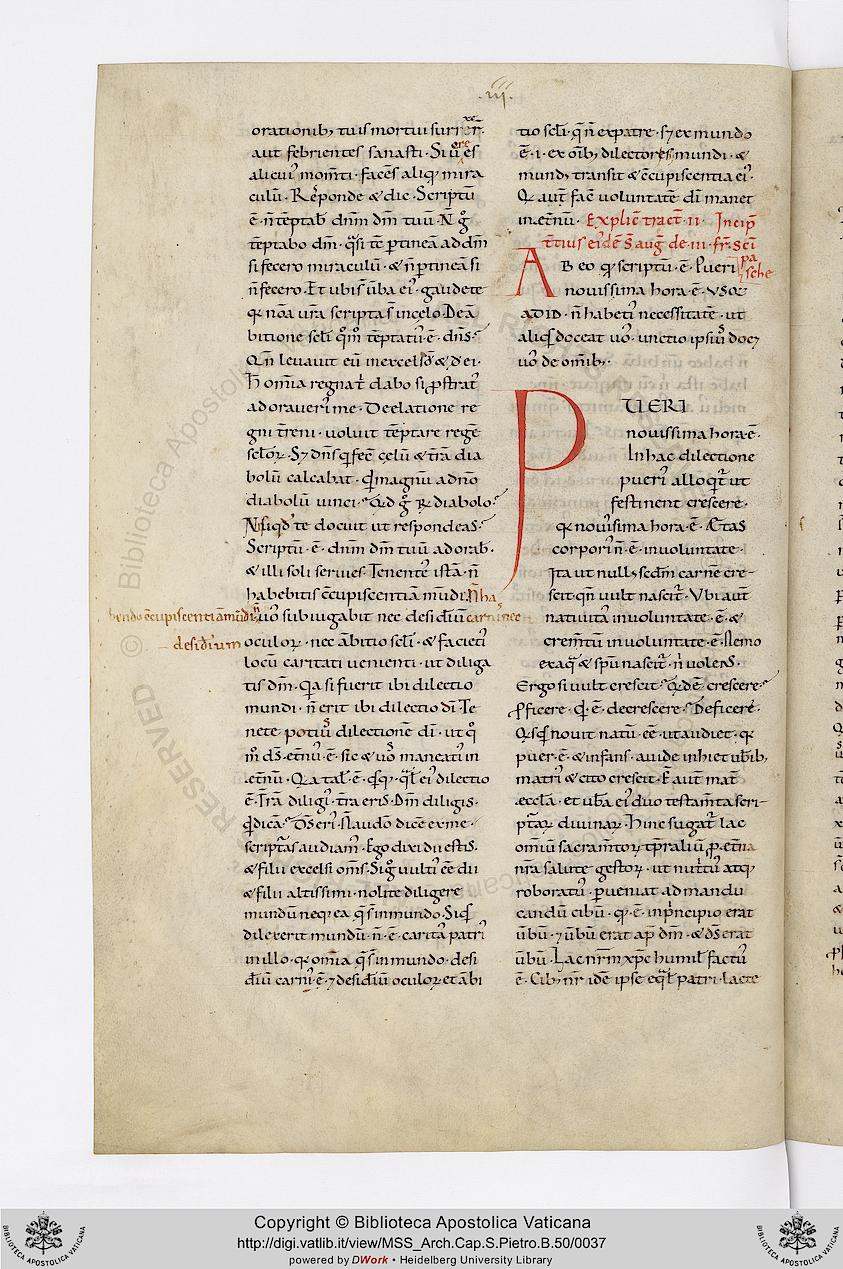 .iii.
orationib; tuis mortui surrexer̄.
aut febrientes sanasti. Si
alicui mom̄ti. facēs aliq; mira
culū. Rēponde & dic. Scriptū
ē. n̄ tēptab̄ dn̄m dm̄ tuū. N̄ g̊
tēptabo dm̄. q̄si tē ptineā ad dm̄
si fecero miraculū. & n̄ ptineā si
n̄ fecero. Et ubi s̄ ūba ei'. gaudete
q̄ noā ur̄a scripta s̄ in celo. De ā
bitione sc̄li. q̊m̊ tēptatus ē. dn̄s.
Qn̄ leuauit eū in excelso & d̄ ei.
H̄ om̄ia regna t̄ dabo si pstrat'
adoraueris me. De elatione re
gni treni. uoluit tēptare regē
sc̄lor̄. S; dn̄s q̄ fec̄ celū & t̄rā dia
bolū calcabat. q̄ magnū a dn̄o
diabolū uinci. Qd g̊ R̄ diabolo.
N̄ si qd te docuit ut respondeas.
Scriptū. ē. dn̄m dm̄ tuū adorab̄.
& illi soli seruies. Tenentes istā. n̄
habebitis c̄cupiscentiā mūdi. N̄ ha
bendo c̄cupiscentiam mūdi. n̄ uos subiugabit nec desid̄iū carnis nec
desid̄ium oculor̄. nec ābitio sc̄li. & facietis
locū caritati uenienti. ut diliga
tis dm̄. Q̄a si fuerit ibi dilectio
mundi. n̄ erit ibi dilectio dī. Te
nete potius dilectionē dī. ut q̊
m̊ ds̄. et̄nus ē. sic & uos maneatis in
et̄nū. Q̄a tal̄. ē. q̄sq;. q̄l̄ ei' dilectio
ē. T̄rā diligis. t̄ra eris. Dm̄ diligis.
q̄d dicā. Ds̄ eris. N̄ audeo dicē ex me.
scripturas audiam'. Ego dixi dii estis.
& filii excelsi om̄s. Si g̊ uultis ēē dii
& filii altissimi. nolite diligere
mundū neq; ea q̄ s̄ in mundo. Si q̄s
dilexerit mundū. n̄. ē. caritas patris
in illo. q̄ om̄ia q̄ s̄ in mundo. desi
diū carnis. ē. 7 desid̄iū oculor̄ et ābi
tio sc̄li. q̄ n̄ ē ex patre. s; ex mundo
ē. i. ex oīb; dilectores mundi. &
mund; transit & c̄cupiscentia ei'.
Q̄ aut̄ fac̄ uoluntatē dī manet
in et̄nū. Explic̄ tract̄. II. Incip̄
t̄tius ei'dē S̄ aug̅ de. III. fr̄. sc̄i
pa
sche
AB eo q̄ scriptū. ē. Pueri
nouissima hora. ē. VSQ;
AD ID. n̄ habetis necessitatē. ut
aliq̄s doceat uos. unctio ipsius doc;
uos de om̄ib;.
PUERI
nouissima hora. ē.
In hac dilectione
pueris alloq̄t' ut
festinent crescere.
q̄ nouissima hora. ē. Ætas
corporis n̄. ē. in uoluntate.
Ita ut nullus sc̄dm carnē cre
scit qn̄ uult nascit'. Vbi aut̄
natiuitas in uoluntate. ē. &
crem̄tū in uoluntate. ē. Nemo
ex aq̄ & spū nascit'. n̄ uolens.
Ergo si uult crescit. Qd ē crescere.
Pficere. Q̄d. ē. decrescere. Deficere.
Q̄sq̄s nouit natū. ēē. ut audiet. q̄
puer. ē. & infans. auide inhiet ub̄ib;
matris & cito crescit. Ē aut̄ mat̄
æccl̄a. et ub̄a ei' duo testam̄ta scri-
pturar̄ diuinar̄. Hinc sugat' lac
omiū sacram̄tor̄ tp̄raliū p et̄na
nr̄a salute gestor̄. ut nutritus atq;
roboratus. pueniat ad mandu
candū cibū. q̄. ē. in principio erat
ūbū. 7 ūbū erat ap̄ dm̄. & ds̄ erat
ūbū. Lac nr̄m xp̄c humil̄ factus
ē. Cib; nr̄ idē ipse eq̄l̄ patri. lacte
Copyright © Biblioteca Apostolica Vaticana
http://digi.vatlib.it/view/MSS_Arch.Cap.S.Pietro.B.50/0037
powered by DWork • Heidelberg University Library